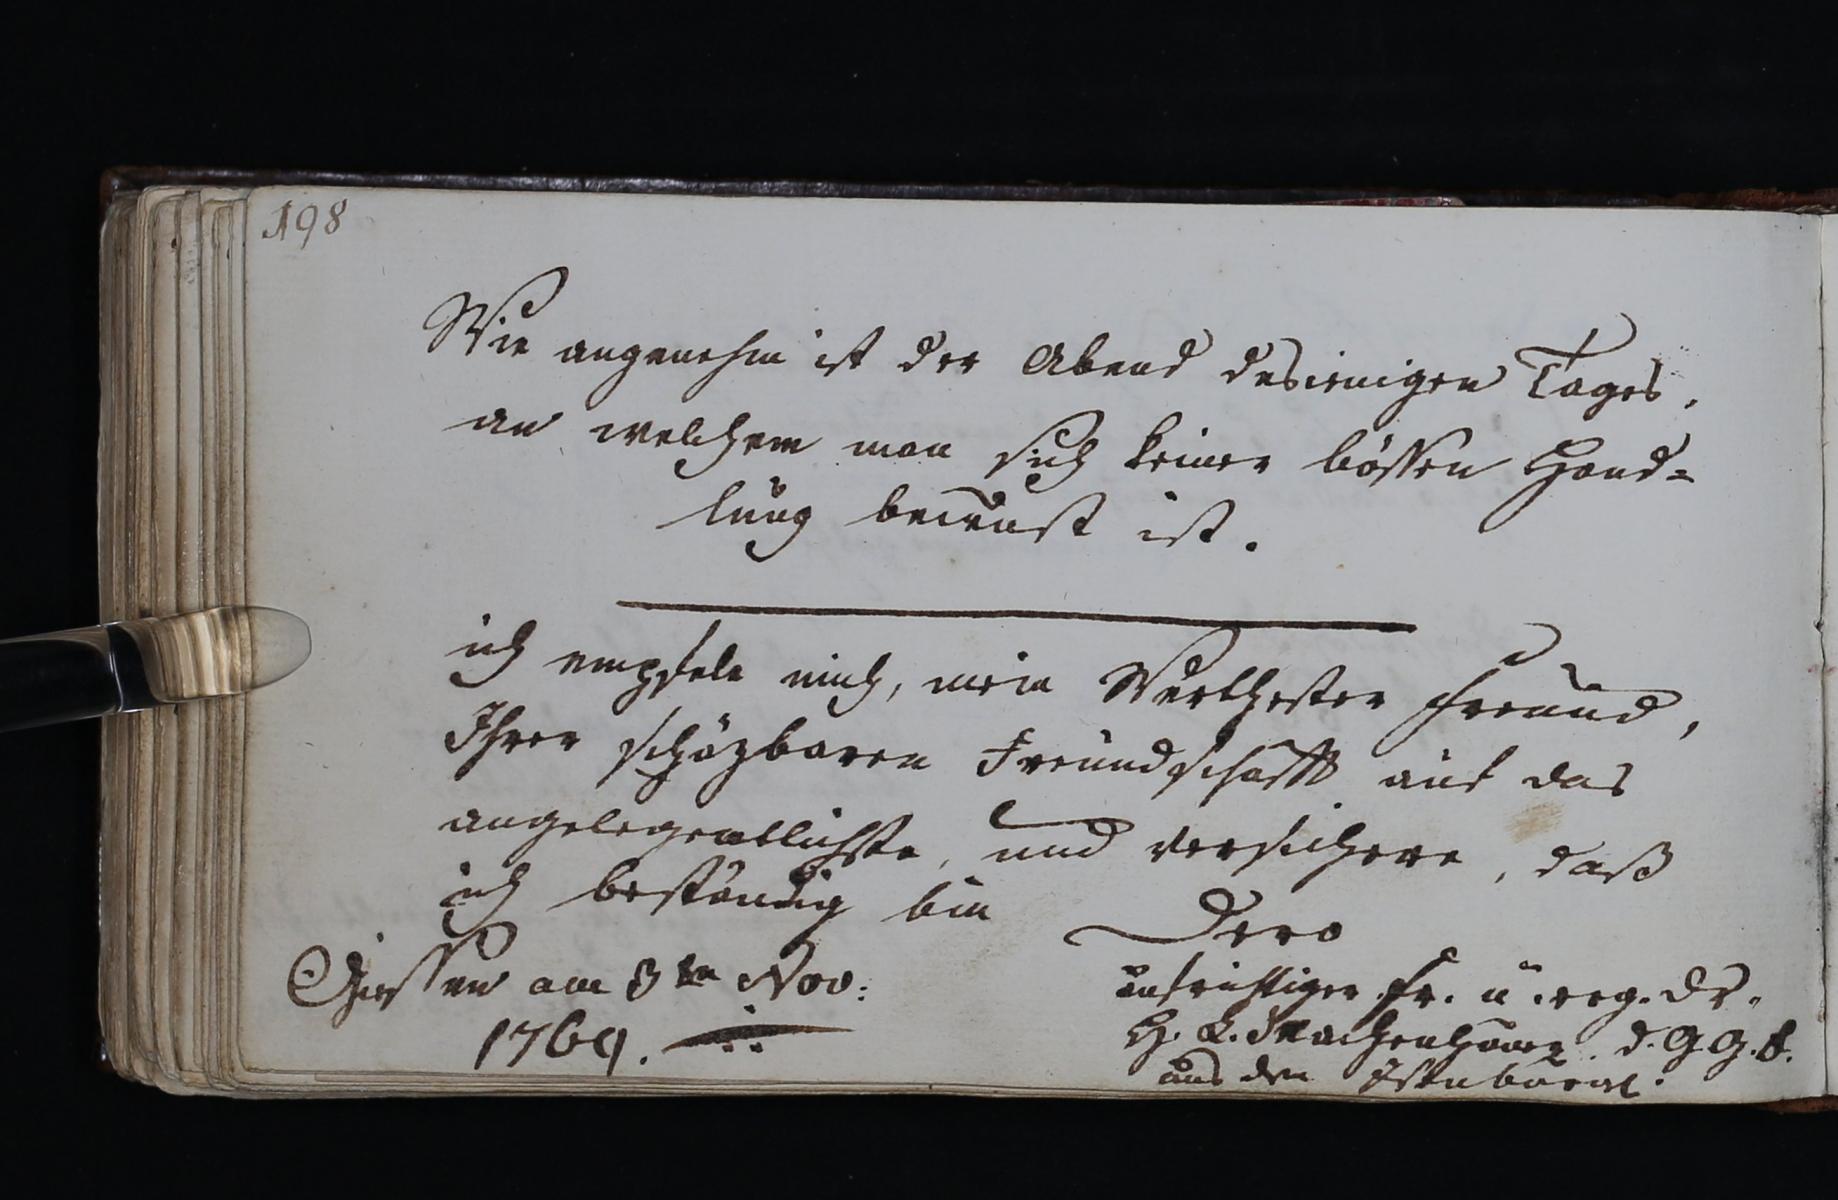 198
Wie angenehm ist der Abend desienigen Tages,
an welchem man sich keiner bössen Hand-
lung bewust ist.
ich empfele mich, mein Werthester Freund,
Ihrer schäzbaren Freundschafft auf das
angelegentlichste, und versichere, daß
ich beständig bin
Dero
Giessen am 8ten Nov:
1769.
aufrichtiger Fr. u. erg. Dr.
H. L. Machenhauer d. G. G. B.
aus dem Isenburg.